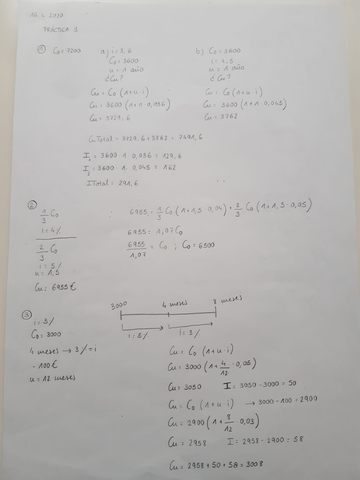 PRÁCTICA
① C₀ = 7200
a) i = 3,6
C₀ = 3600
n = 1 año
¿Cn?
Cn = C₀ (1+n·i)
Cn = 3600 (1+1·0,036)
Cn = 3729,6
b) C₀ = 3600
n = 1 año
¿Cn?
Cn = C₀ (1+n·i)
Cn = 3600 (1+1·0,045)
Cn = 3762
CnTotal = 3729,6 + 3762 = 7491,6
I = 3600·1·0,036 = 129,6
I = 3600·1·0,045 = 162
ITotal = 291,6
②
1/3 C₀
i = 4%
2/3 C₀
i = 5%
n = 1,5
Cn: 6955 €
6955 = 1/3 C₀ (1+1,5·0,04) + 2/3 C₀ (1+1,5·0,05)
6955 = 1,07 C₀
6955/1,07 = C₀ ; C₀ = 6500
③
3000 4 meses 8 meses
i = 5% i = 3%
i = 5%
C₀ = 3000
4 meses → 3% = i
- 100€
n = 12 meses
Cn = C₀ (1+n·i)
Cn = 3000 (1+ 4/12 · 0,05)
Cn = 3050 I = 3050 - 3000 = 50
Cn = C₀ (1+n·i) → 3000 - 100 = 2900
Cn = 2900 (1+ 8/12 · 0,03)
Cn = 2958 I = 2958 - 2900 = 58
Cn = 2958 + 50 + 58 = 3008